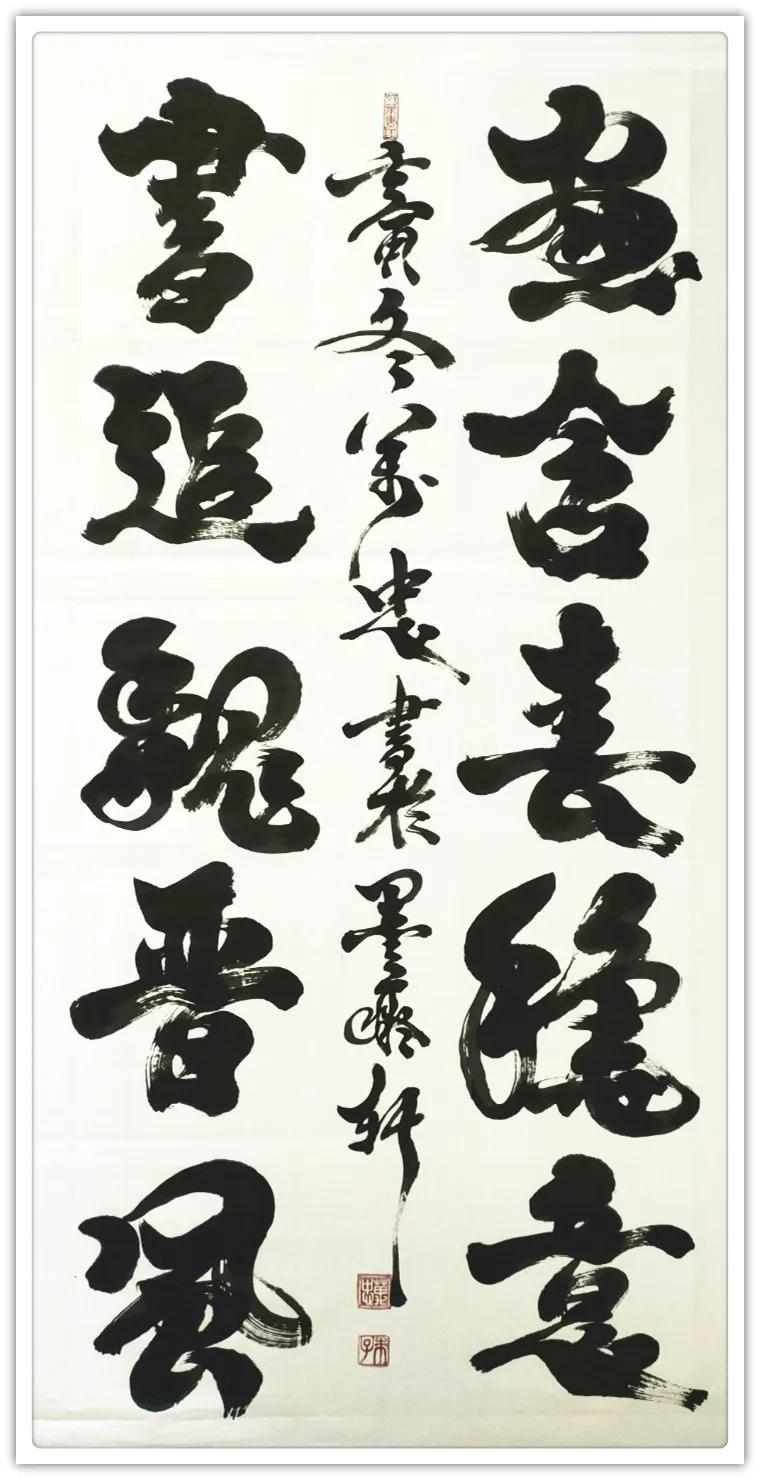 畫含春意
壬寅冬萬忠書於墨軒
書追魏晉風